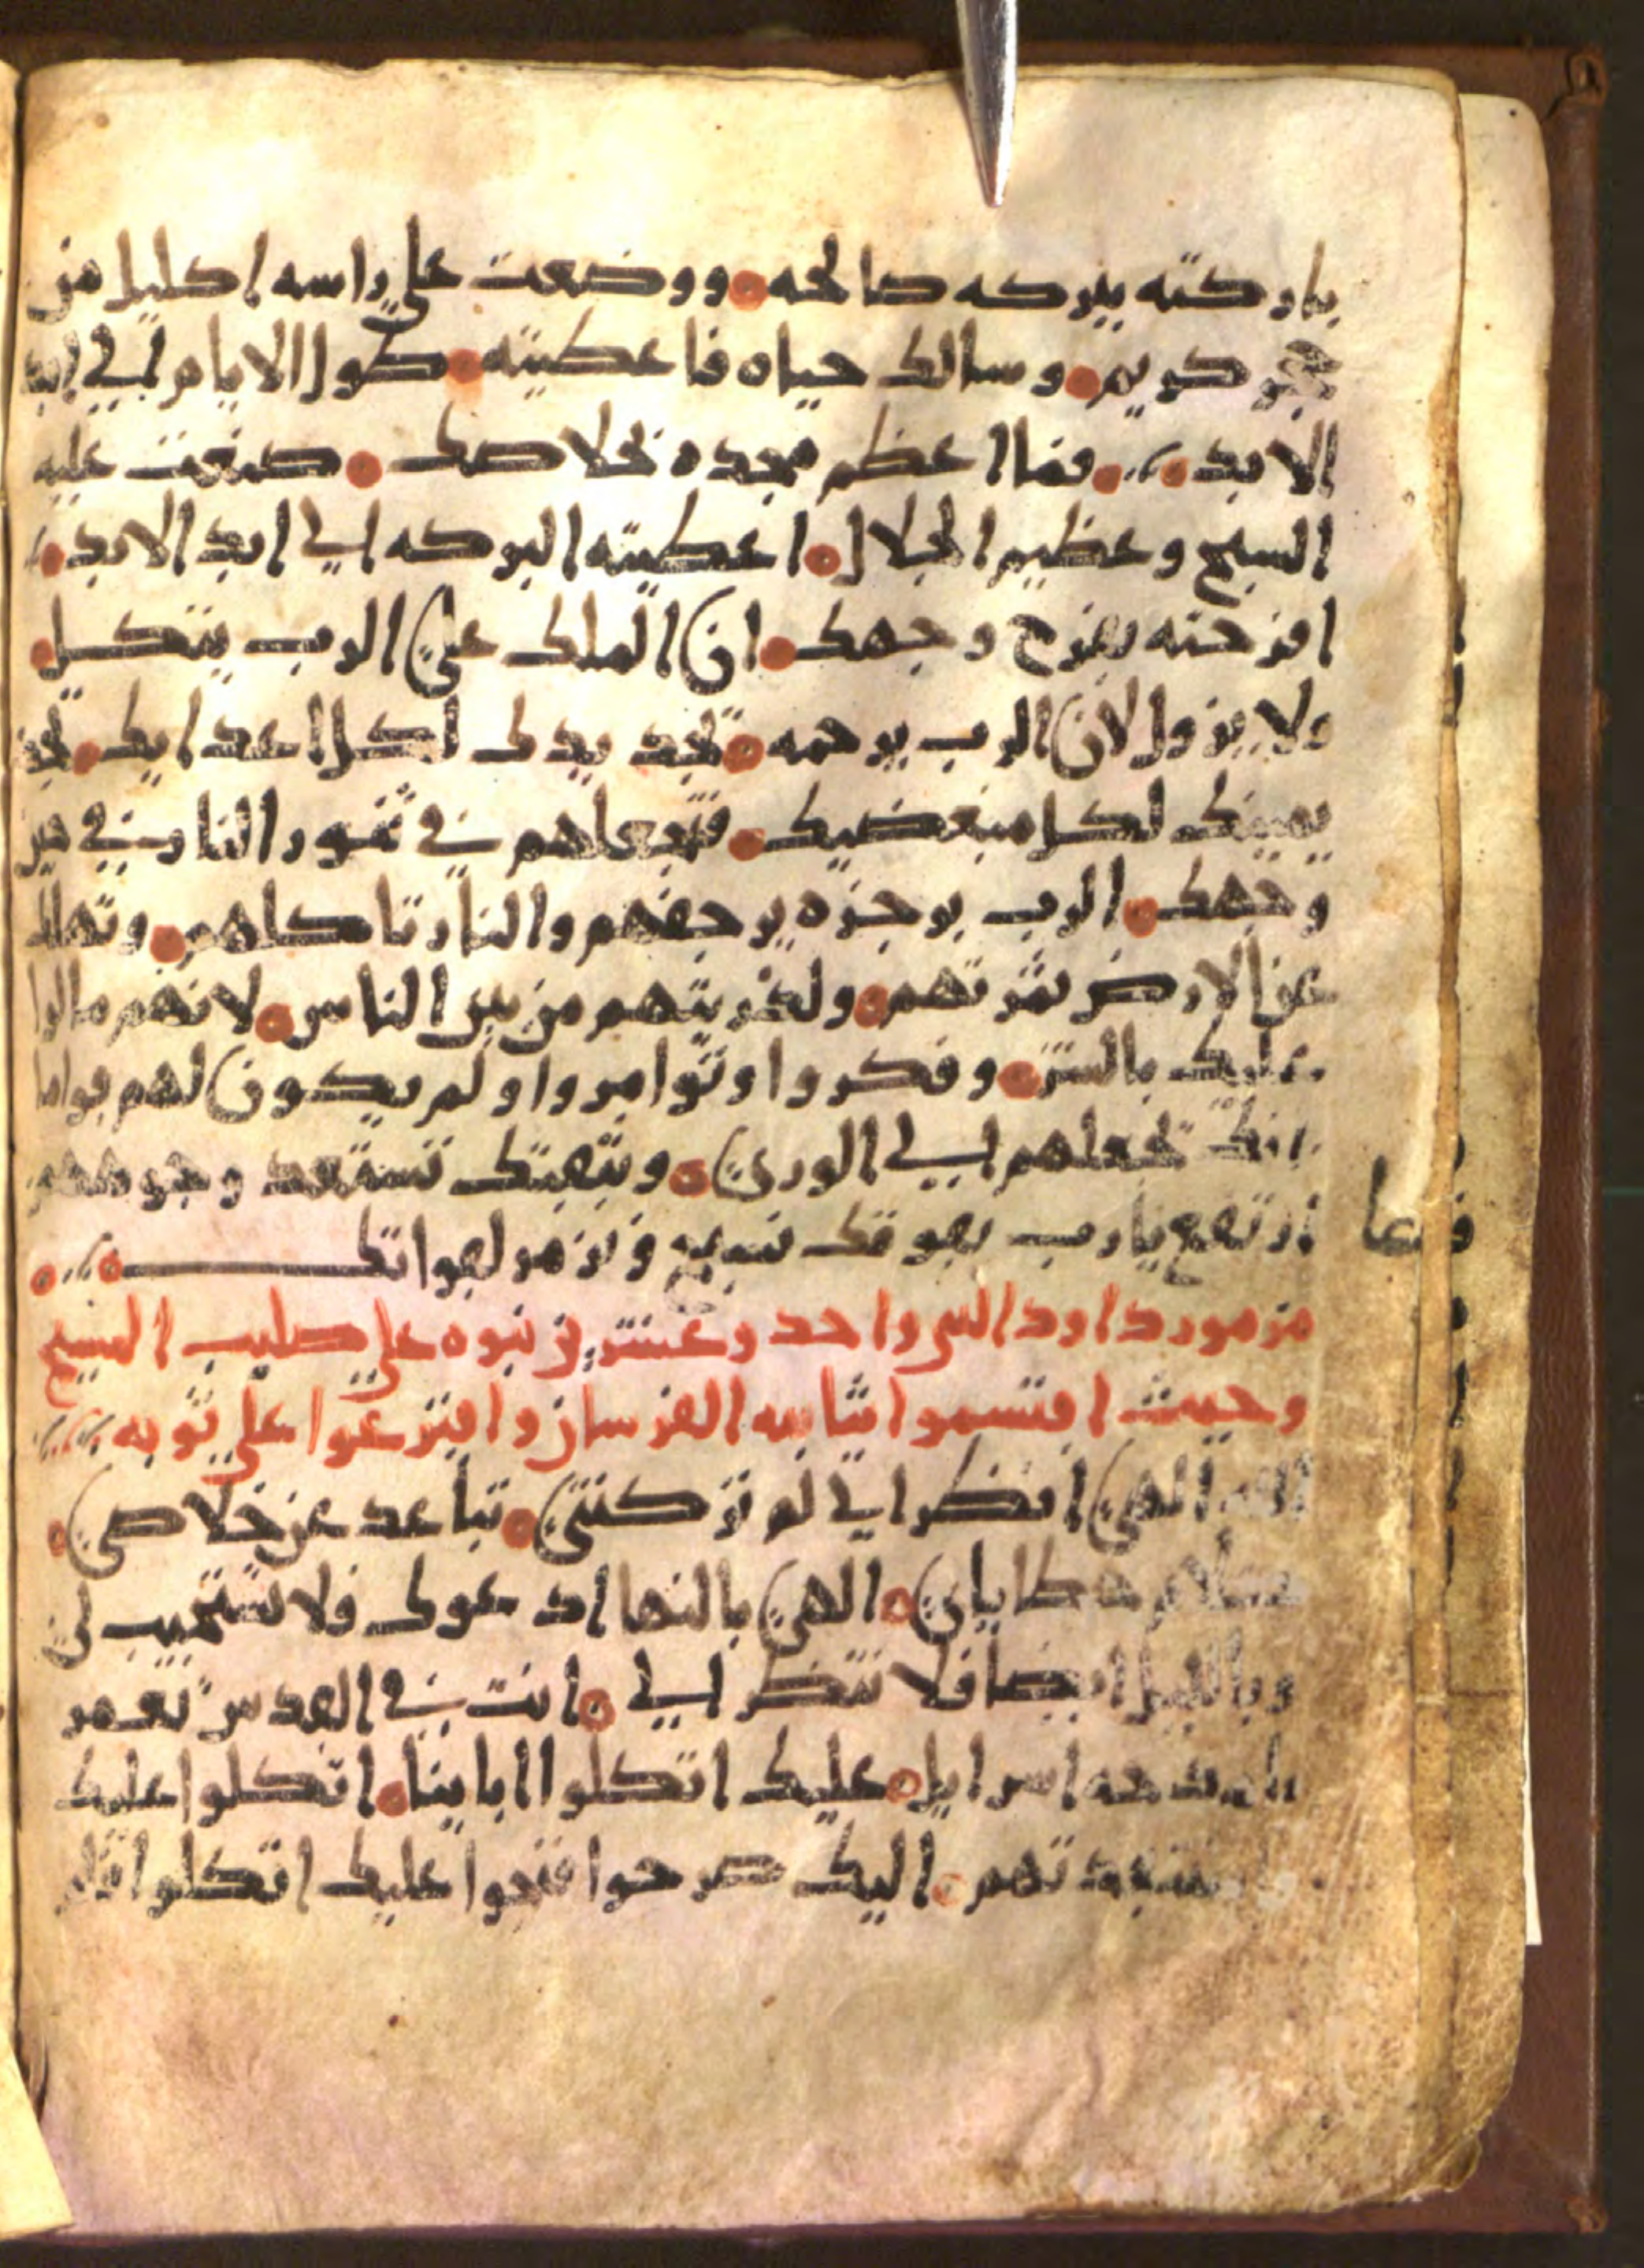 باركته ببركه صالحه ووضعت على راسه اكليل من
حجر كريم وسالك حياه فاعطيته طول الايام الى ابد
الابد فما اعظم مجده بخلاصك صنعت عليه
السبح وعظيم الجلال اعطيته البركه الى ابد الابد
افرحته بفرح وجهك ان الملك على الرب يتكل
ولا يزول لان الرب يرحمه تجد يدك لكل اعدايك تجد
يمينك لكل مبغضيك فتجعلهم في تنور النار في حين
وجهك الرب برجزه يرجفهم والنار تاكلهم وتهلك
عن الارض ثمرتهم ولذريتهم من بين الناس لانهم مالوا
عليك بالشر وفكروا وتوامروا ولم يكون لهم قواما
انك تجعلهم الى الورى وبتهيتك تستعد وجوههم
ارتفع يارب بقوتك نسبح ونزمر لقواتك
مزمور داود الـى واحد وعشرين نبوه على صليب المسيح
وحيث اقتسموا ثيابه الفرسان واقترعوا على ثوبه
الله الهي انظر الي لم تركتني تباعد عن خلاصي
بكلام خطاياي الهي بالنهار ادعوك فلا تستجيب لي
وبالليل ايضا فلا تنظر الي انت في القدس تعمر
يا مدحه اسرايل عليك اتكلوا اباينا اتكلوا عليك
تهم اليك صرخوا فنجوا عليك اتكلوا فلم
فىعا